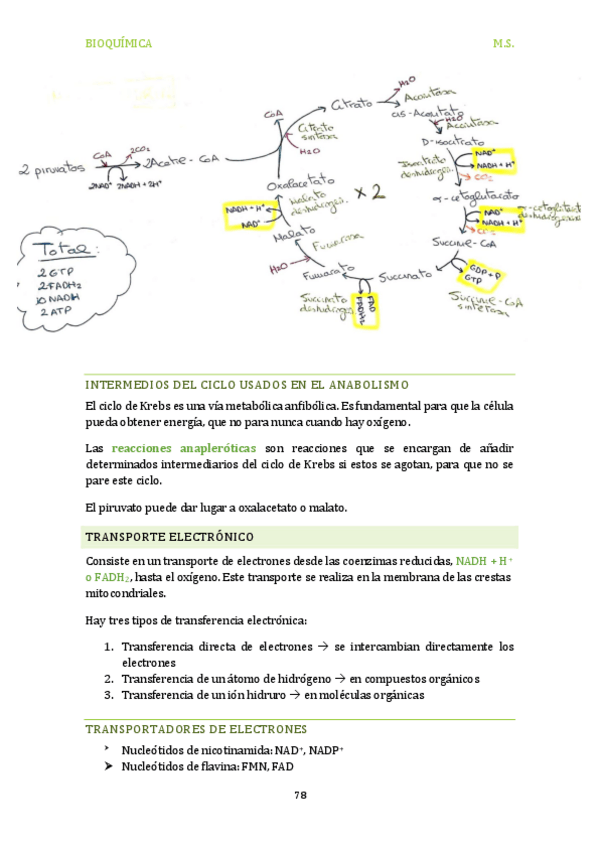 BIOQUÍMICA M.S.
2 piruvatos
CoA
2CO₂
2NAD⁺ 2NADH + 2H⁺
2Acetil-CoA
CoA
Citrato
Citrato
sintasa
H₂O
H₂O
Aconitasa
cis-Aconitato
H₂O
Aconitasa
D-isocitrato
Isocitrato
deshidrogen.
NAD⁺
NADH + H⁺
CO₂
α-cetoglutarato
NAD⁺
NADH + H⁺
α-cetoglutarato
deshidrogenasa
CO₂
Succinil-CoA
GDP + P
GTP
Succinil-CoA
sintetasa
Succinato
FAD
FADH₂
Succinato
deshidrogen.
Fumarato
H₂O
Fumarasa
Malato
Malato
deshidrogen.
NADH + H⁺
NAD⁺
Oxalacetato
x 2
Total:
2 GTP
2 FADH₂
10 NADH
2 ATP
INTERMEDIOS DEL CICLO USADOS EN EL ANABOLISMO
El ciclo de Krebs es una vía metabólica anfibólica. Es fundamental para que la célula
pueda obtener energía, que no para nunca cuando hay oxígeno.
Las reacciones anapleróticas son reacciones que se encargan de añadir
determinados intermediarios del ciclo de Krebs si estos se agotan, para que no se
pare este ciclo.
El piruvato puede dar lugar a oxalacetato o malato.
TRANSPORTE ELECTRÓNICO
Consiste en un transporte de electrones desde las coenzimas reducidas, NADH + H⁺
o FADH₂, hasta el oxígeno. Este transporte se realiza en la membrana de las crestas
mitocondriales.
Hay tres tipos de transferencia electrónica:
1. Transferencia directa de electrones → se intercambian directamente los
electrones
2. Transferencia de un átomo de hidrógeno → en compuestos orgánicos
3. Transferencia de un ión hidruro → en moléculas orgánicas
TRANSPORTADORES DE ELECTRONES
➤ Nucleótidos de nicotinamida: NAD⁺, NADP⁺
➤ Nucleótidos de flavina: FMN, FAD
78